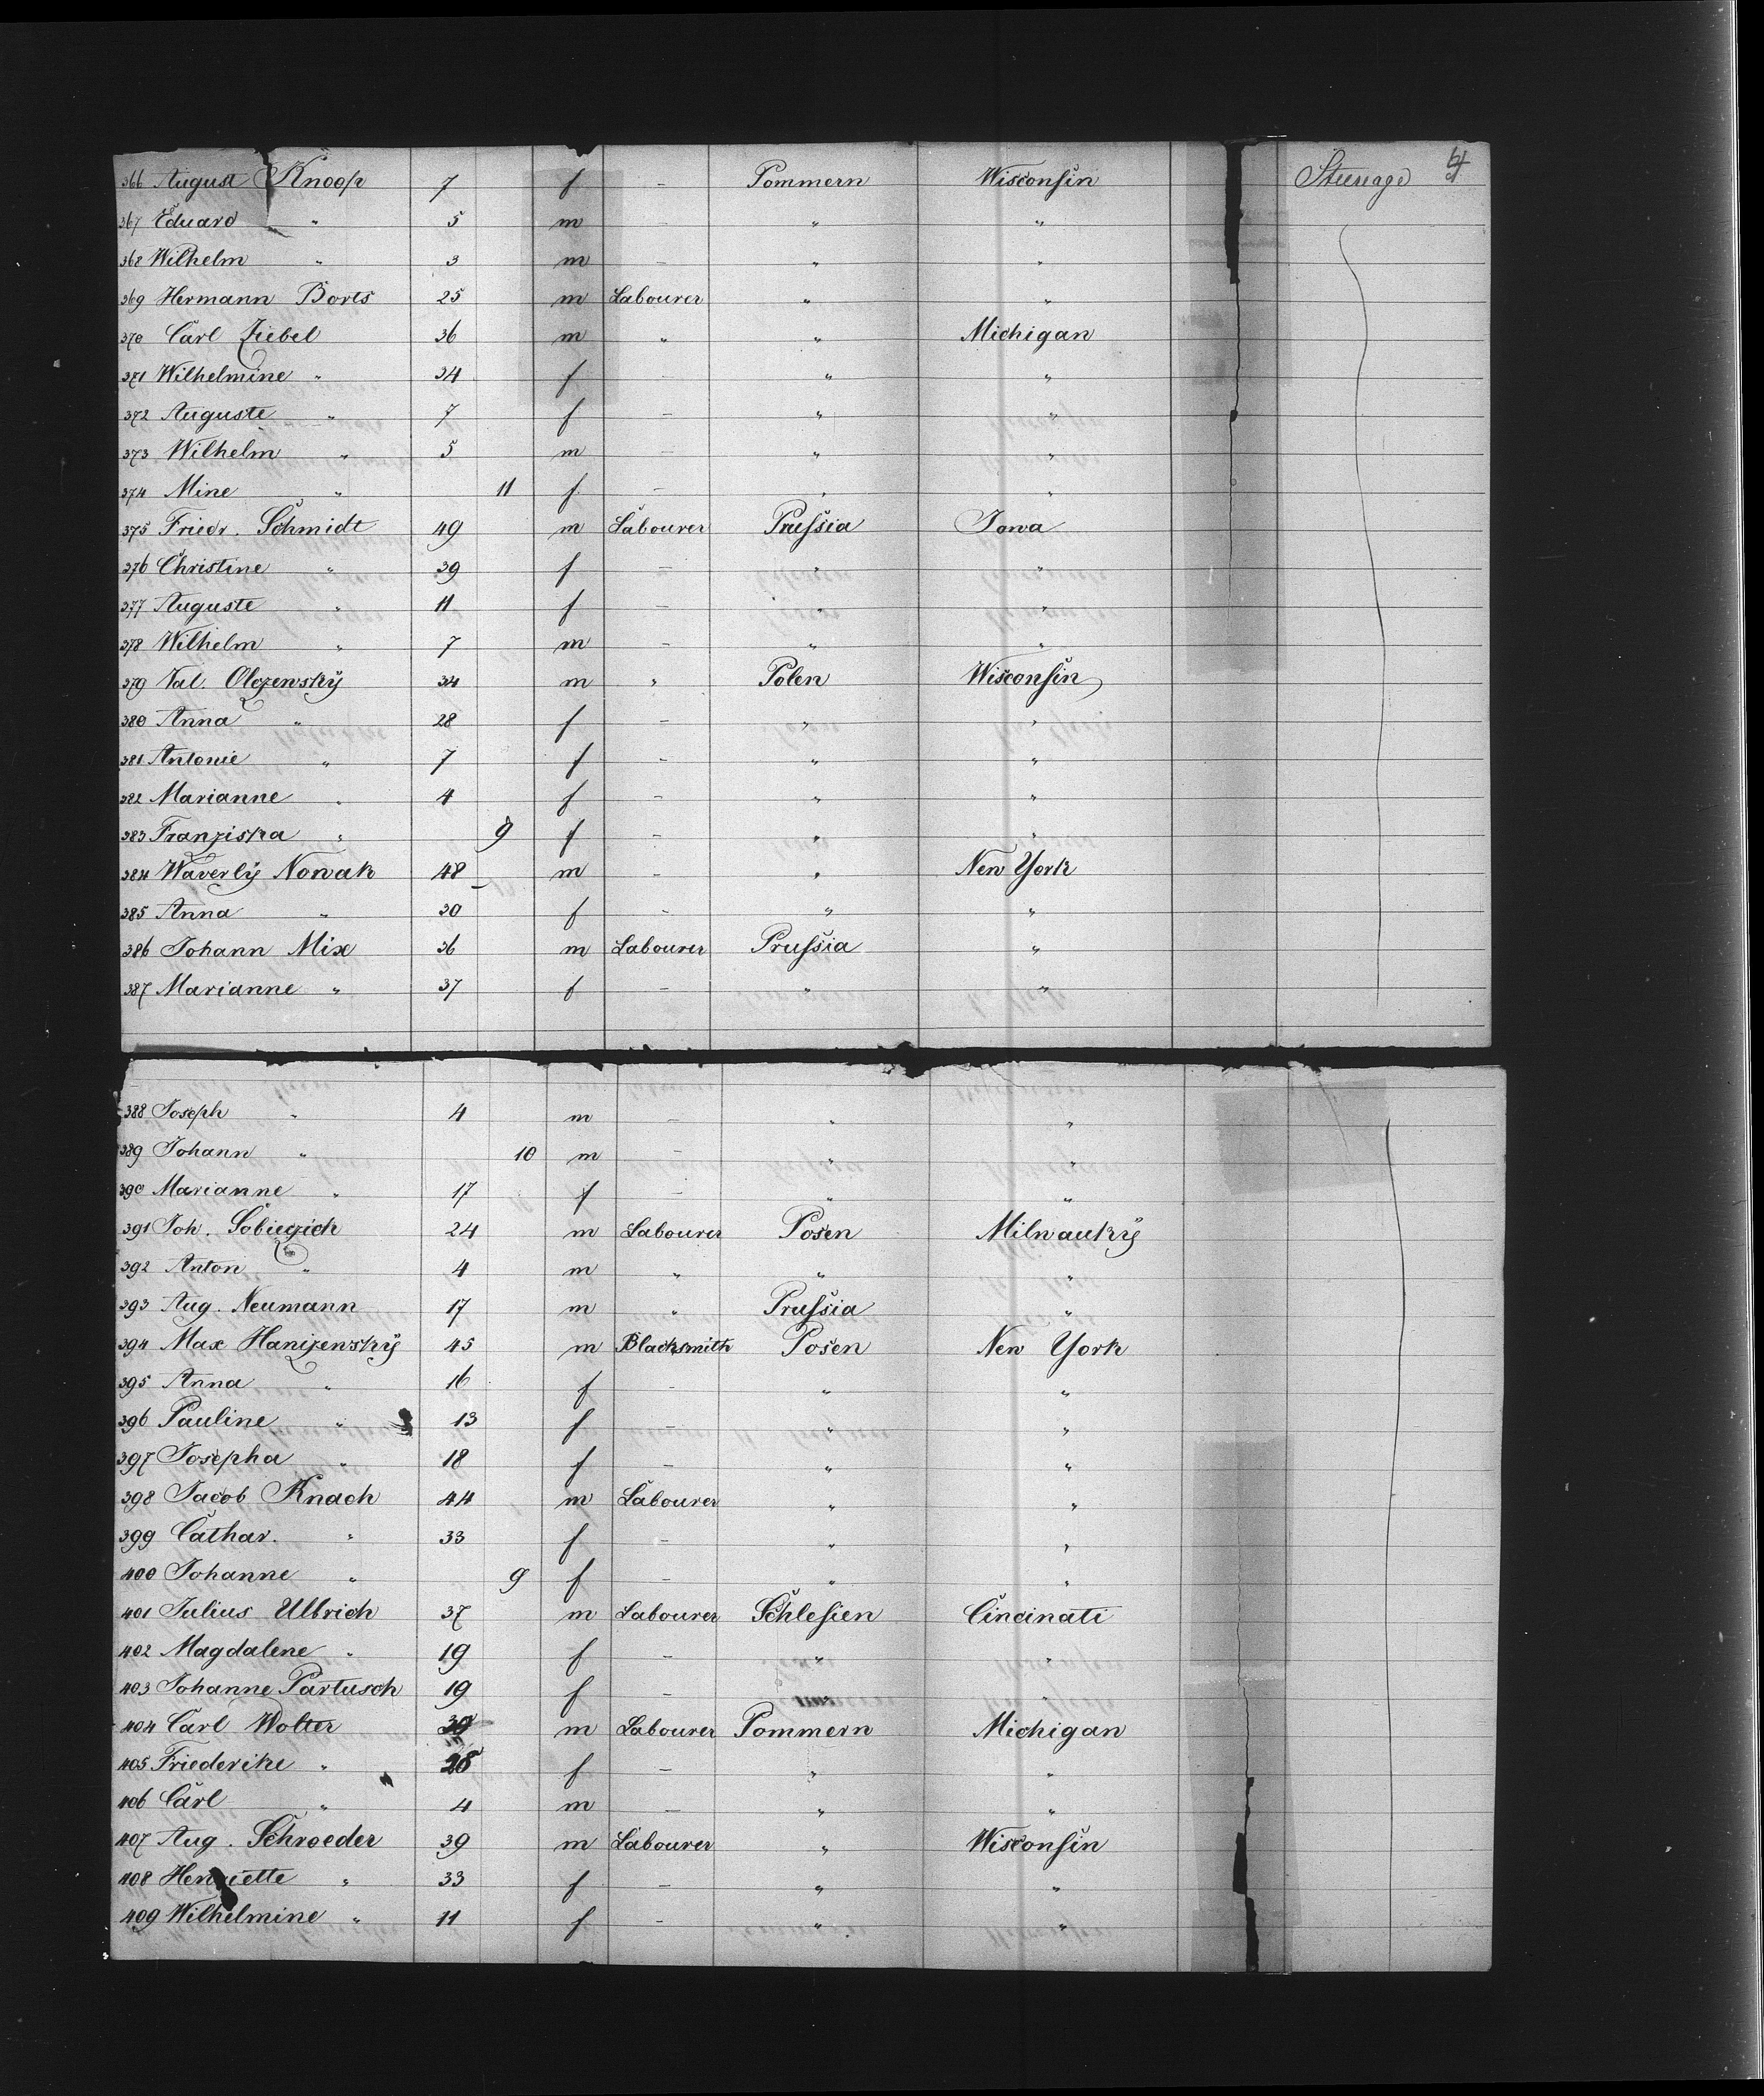 366 August Knoop 7 f - Pommern Wisconsin Steerage
367 Eduard " 5 m - " "
368 Wilhelm " 3 m - " "
369 Hermann Borts 25 m Labourer " "
370 Carl Ziebel 36 m " " Michigan
371 Wilhelmine " 34 f - " "
372 Auguste " 7 f - " "
373 Wilhelm " 5 m - " "
374 Mine " 11 f - " "
375 Friedr. Schmidt 49 m Labourer Prussia Iowa
376 Christine " 39 f - " "
377 Auguste " 11 f - " "
378 Wilhelm " 7 m - " "
379 Val. Olczenskÿ 34 m " Polen Wisconsin
380 Anna " 28 f - " "
381 Antonie " 7 f - " "
382 Marianne " 4 f - " "
383 Franziska " 9 f - " "
384 Waverlÿ Nowak 48 m - " New York
385 Anna " 30 f - " "
386 Johann Mix 36 m Labourer Prussia "
387 Marianne " 37 f - " "
388 Joseph " 4 m - " "
389 Johann " 10 m - " "
390 Marianne " 17 f - " "
391 Joh. Sobieczich 24 m Labourer Posen Milwaukÿ
392 Anton " 4 m " " "
393 Aug. Neumann 17 m " Prussia "
394 Max Hanizenskÿ 45 m Blacksmith Posen New York
395 Anna " 16 f - " "
396 Pauline " 13 f - " "
397 Josepha " 18 f - " "
398 Jacob Knach 44 m Labourer " "
399 Cathar. " 33 f - " "
400 Johanne " 9 f - " "
401 Julius Ulbrich 37 m Labourer Schlesien Cincinati
402 Magdalene " 19 f - " "
403 Johanne Partusch 19 f - "
404 Carl Wolter 39 m Labourer Pommern Michigan
405 Friederike " 28 f - " "
406 Carl " 4 m - " "
407 Aug. Schroeder 39 m Labourer " Wisconsin
408 Henriette " 33 f - " "
409 Wilhelmine " 11 f - " "